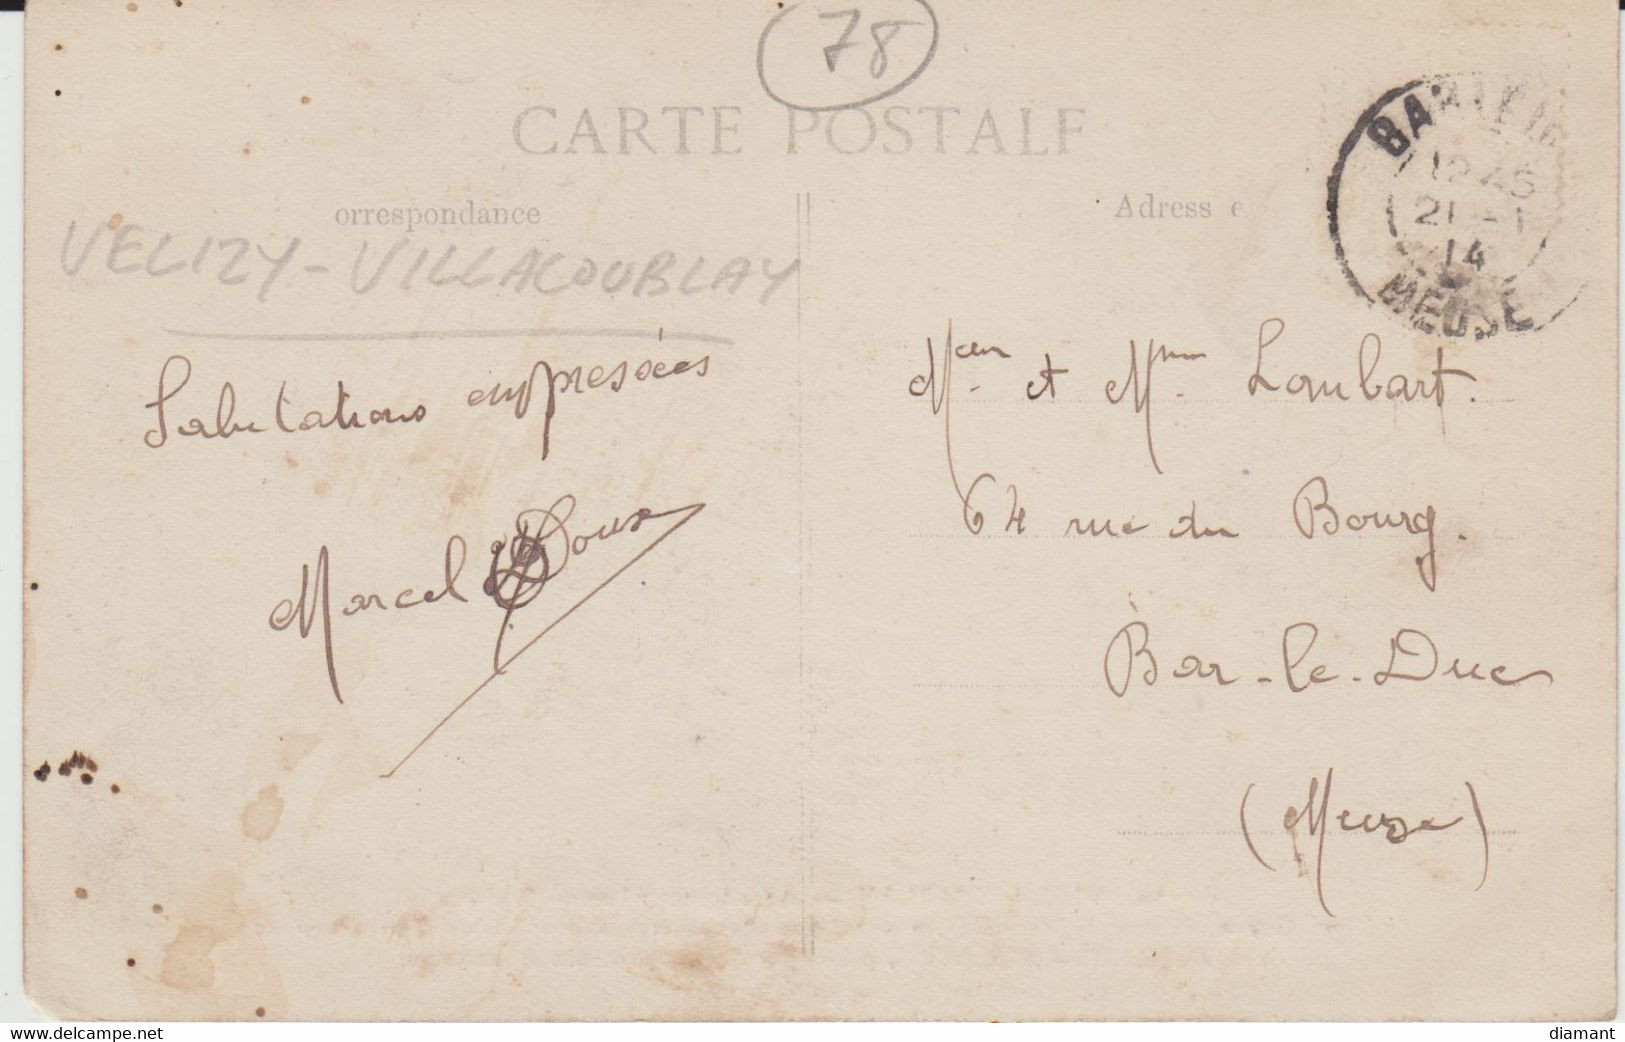 78
CARTE POSTALE
orrespondance
Adresse
VELIZY-VILLACOUBLAY
BAR LE
12 45
21 -1
14
MEUSE
Salutations empressées
Marcel
Mr et Mme Lombart.
64 rue du Bourg.
Bar-le-Duc
(Meuse)
www.delcampe.net
diamant